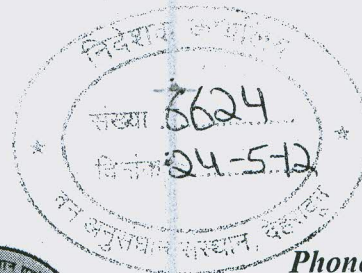 निदेशक कार्यालय
संख्या 6624
दिनांक 24-5-12
वन अनुसंधान संस्थान, देहरादून
Phone